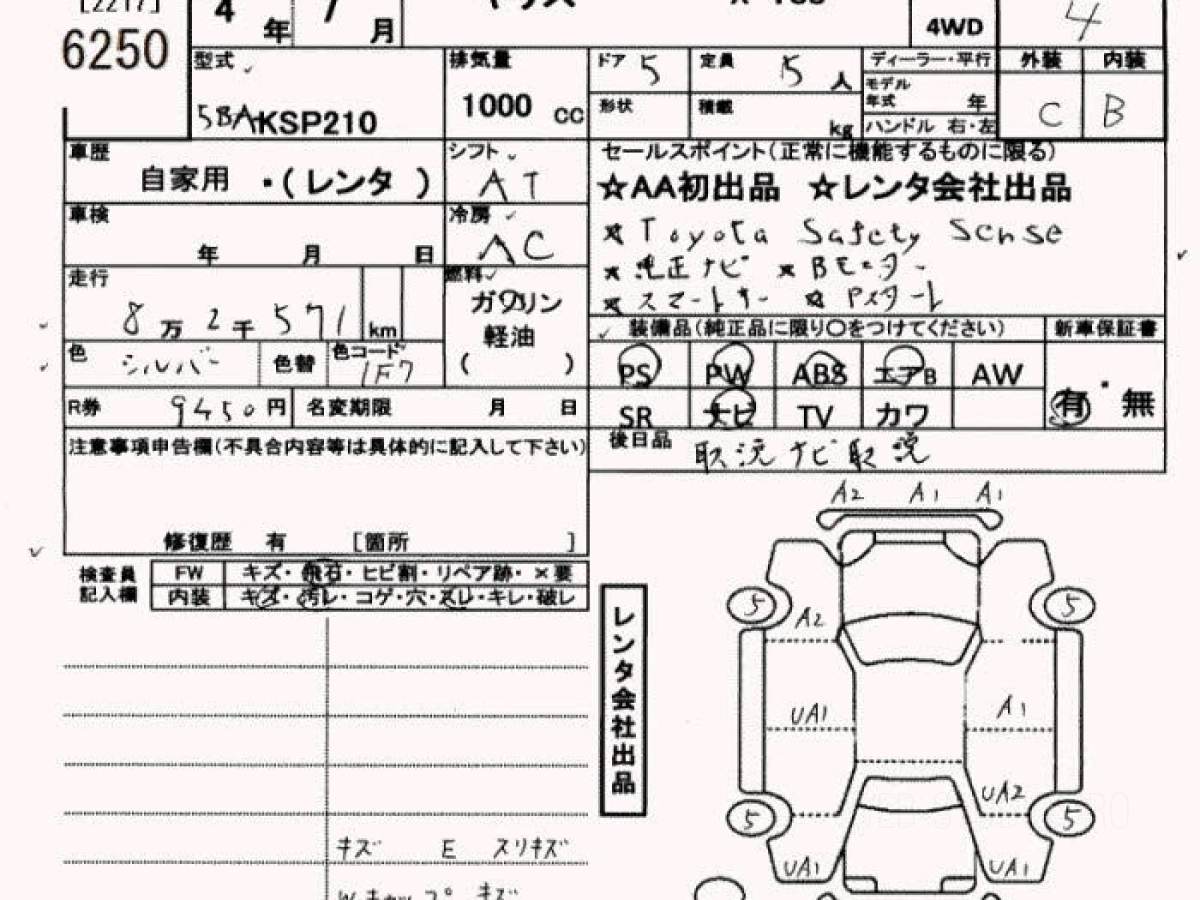 [2217]
6250
4 年 7 月
4WD
4
型式
5BA-KSP210
排気量
1000 cc
ドア 5
定員 5 人
形状
積載 kg
ディーラー・平行
モデル年式 年
ハンドル 右・左
外装 内装
C B
車歴
自家用 ・(レンタ )
シフト
AT
車検
年 月 日
冷房
AC
走行
8 万 2 千 571 km
燃料
ガソリン
軽油
( )
色
シルバー
色替
色コード
1F7
R券 9450 円
名変期限 月 日
セールスポイント(正常に機能するものに限る)
☆AA初出品 ☆レンタ会社出品
☆Toyota Safety Sense
☆純正ナビ ☆Bモニター
☆スマートキー ☆Pスタート
装備品(純正品に限り〇をつけてください)
新車保証書
PS PW ABS エアB AW
SR ナビ TV カワ
有・無
後日品 取説 ナビ取説
注意事項申告欄(不具合内容等は具体的に記入して下さい)
修復歴 有 [箇所 ]
検査員記入欄
FW キズ・飛石・ヒビ割・リペア跡・×要
内装 キズ・汚レ・コゲ・穴・スレ・キレ・破レ
レンタ会社出品
A2 A1 A1
5 5
A2
UA1 A1
UA2
5 5
UA1 UA1
キズ E スリキズ